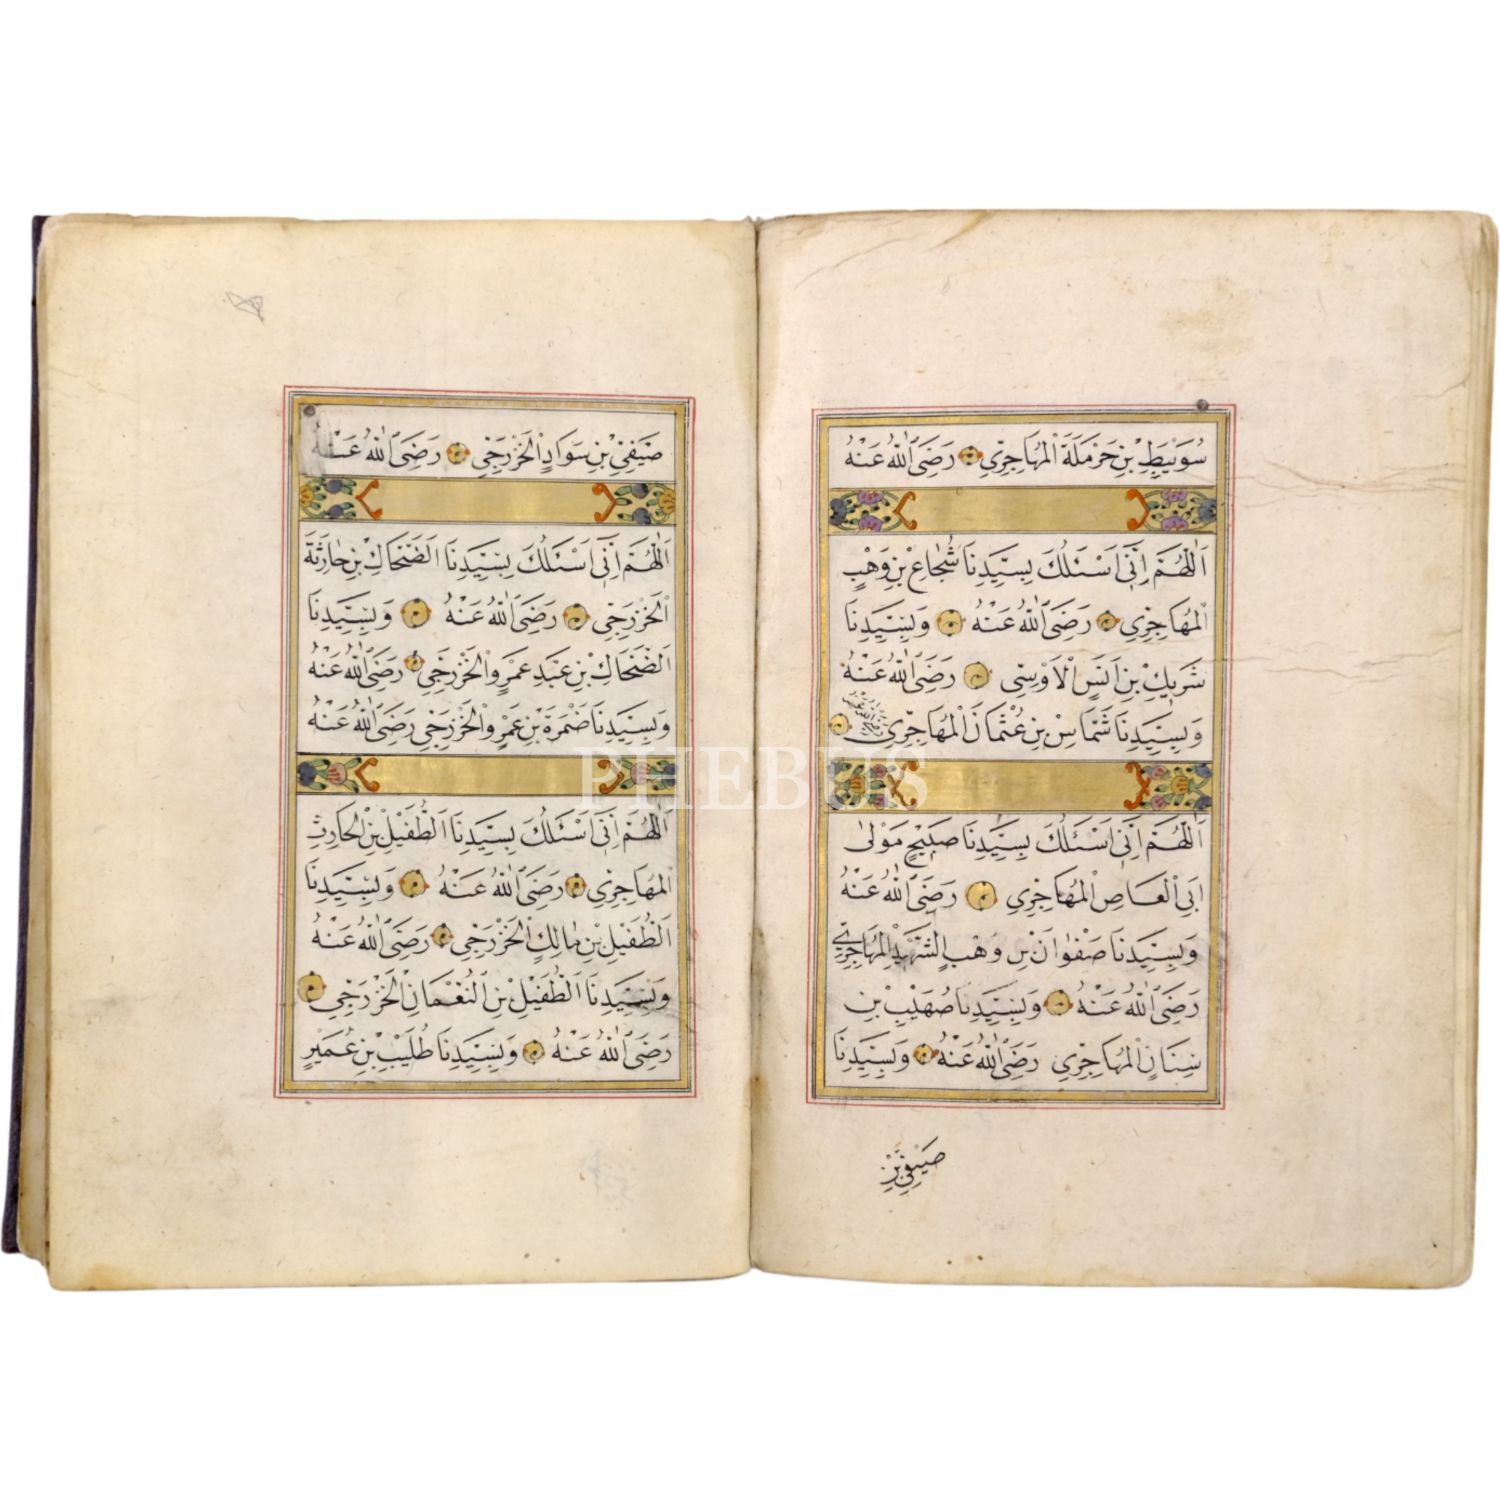 سُوَيْبِطِ بْنِ حَرْمَلَةَ الْمُهَاجِرِيِّ رَضِيَ اللهُ عَنْهُ
اَللّٰهُمَّ اِنِّى اَسْئَلُكَ بِسَيِّدِنَا شُجَاعِ بْنِ وَهْبٍ
الْمُهَاجِرِيِّ رَضِيَ اللهُ عَنْهُ وَبِسَيِّدِنَا
شَرِيكِ بْنِ اَنَسٍ الْاَوْسِيِّ رَضِيَ اللهُ عَنْهُ
وَبِسَيِّدِنَا شَمَّاسِ بْنِ عُثْمَانَ الْمُهَاجِرِيِّ رَضِيَ اللهُ عَنْهُ
اَللّٰهُمَّ اِنِّى اَسْئَلُكَ بِسَيِّدِنَا صَبِيْحٍ مَوْلٰى
اَبِي الْعَاصِ الْمُهَاجِرِيِّ رَضِيَ اللهُ عَنْهُ
وَبِسَيِّدِنَا صَفْوَانَ بْنِ وَهْبٍ الشَّهِيْدِ الْمُهَاجِرِيِّ
رَضِيَ اللهُ عَنْهُ وَبِسَيِّدِنَا صُهَيْبِ بْنِ
سِنَانٍ الْمُهَاجِرِيِّ رَضِيَ اللهُ عَنْهُ وَبِسَيِّدِنَا
صَيْفِيِّ بْنِ
صَيْفِيِّ بْنِ سَوَادٍ الْخَزْرَجِيِّ رَضِيَ اللهُ عَنْهُ
اَللّٰهُمَّ اِنِّى اَسْئَلُكَ بِسَيِّدِنَا الضَّحَّاكِ بْنِ حَارِثَةَ
الْخَزْرَجِيِّ رَضِيَ اللهُ عَنْهُ وَبِسَيِّدِنَا
الضَّحَّاكِ بْنِ عَبْدِ عَمْرٍو الْخَزْرَجِيِّ رَضِيَ اللهُ عَنْهُ
وَبِسَيِّدِنَا ضَمْرَةَ بْنِ عَمْرٍو الْخَزْرَجِيِّ رَضِيَ اللهُ عَنْهُ
اَللّٰهُمَّ اِنِّى اَسْئَلُكَ بِسَيِّدِنَا الطُّفَيْلِ بْنِ الْحَارِثِ
الْمُهَاجِرِيِّ رَضِيَ اللهُ عَنْهُ وَبِسَيِّدِنَا
الطُّفَيْلِ بْنِ مَالِكٍ الْخَزْرَجِيِّ رَضِيَ اللهُ عَنْهُ
وَبِسَيِّدِنَا الطُّفَيْلِ بْنِ النُّعْمَانِ الْخَزْرَجِيِّ
رَضِيَ اللهُ عَنْهُ وَبِسَيِّدِنَا طُلَيْبِ بْنِ عُمَيْرٍ
PHEBUS